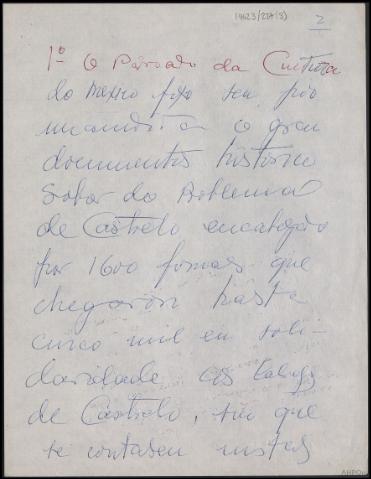 19623/22A(5)
2
1º O Párroco da Cultura
do mesmo fixo seu, pro
nunciando o gran
documento histórico
Sobor do Problema
de Castrelo encabezado
por 1600 firmas que
chegarón hasta
cinco mil en soli-
daridade cos labregos
de Castrelo, sin que
se contasen nistas
AHPOu